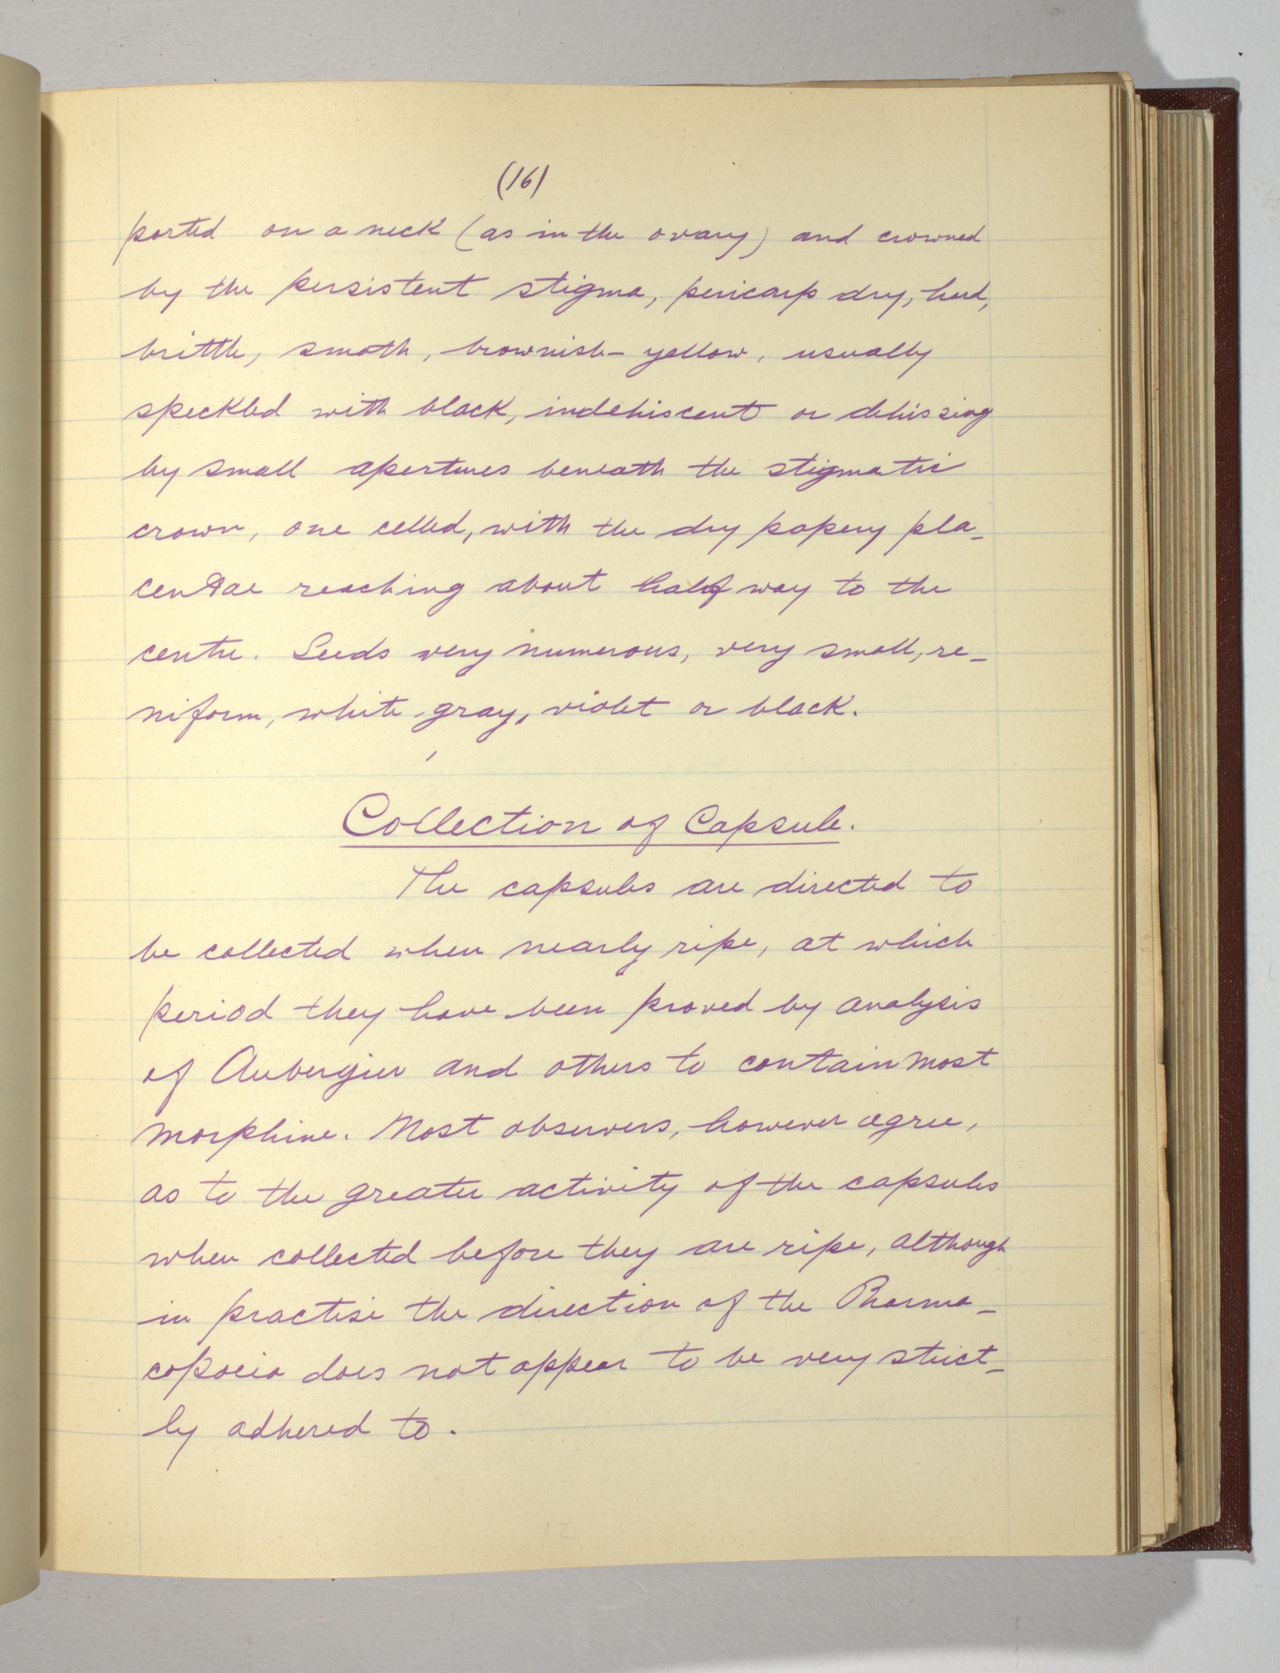 (16)
ported on a neck (as in the ovary) and crowned
by the persistent stigma, pericarp dry, hard,
brittle, smoth, brownish-yellow, usually
speckled with black, indehiscent or dehissing
by small apertures beneath the stigmatic
crown, one celled, with the dry papery pla-
centae reaching about half way to the
centre. Seeds very numerous, very small, re-
niform, white gray, violet or black.
Collection of Capsule.
The capsules are directed to
be collected when nearly ripe, at which
period they have been proved by analysis
of Aubergier and others to contain most
morphine. Most observers, however agree,
as to the greater activity of the capsules
when collected before they are ripe, although
in practise the direction of the Pharma-
copoeia does not appear to be very strict-
ly adhered to.